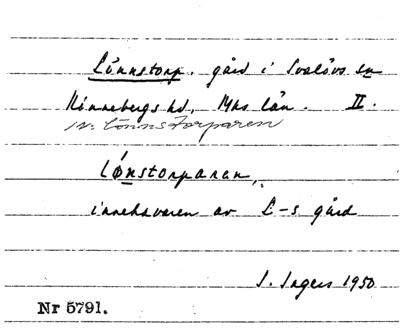 Lönnstorp. gård i Svalövs sn
Rönnebergs hd, Mhs län. II.
N: Lönnstorparen
Lønstorparan,
innehavaren av L-s gård
I. Ingers 1950
Nr 5791.